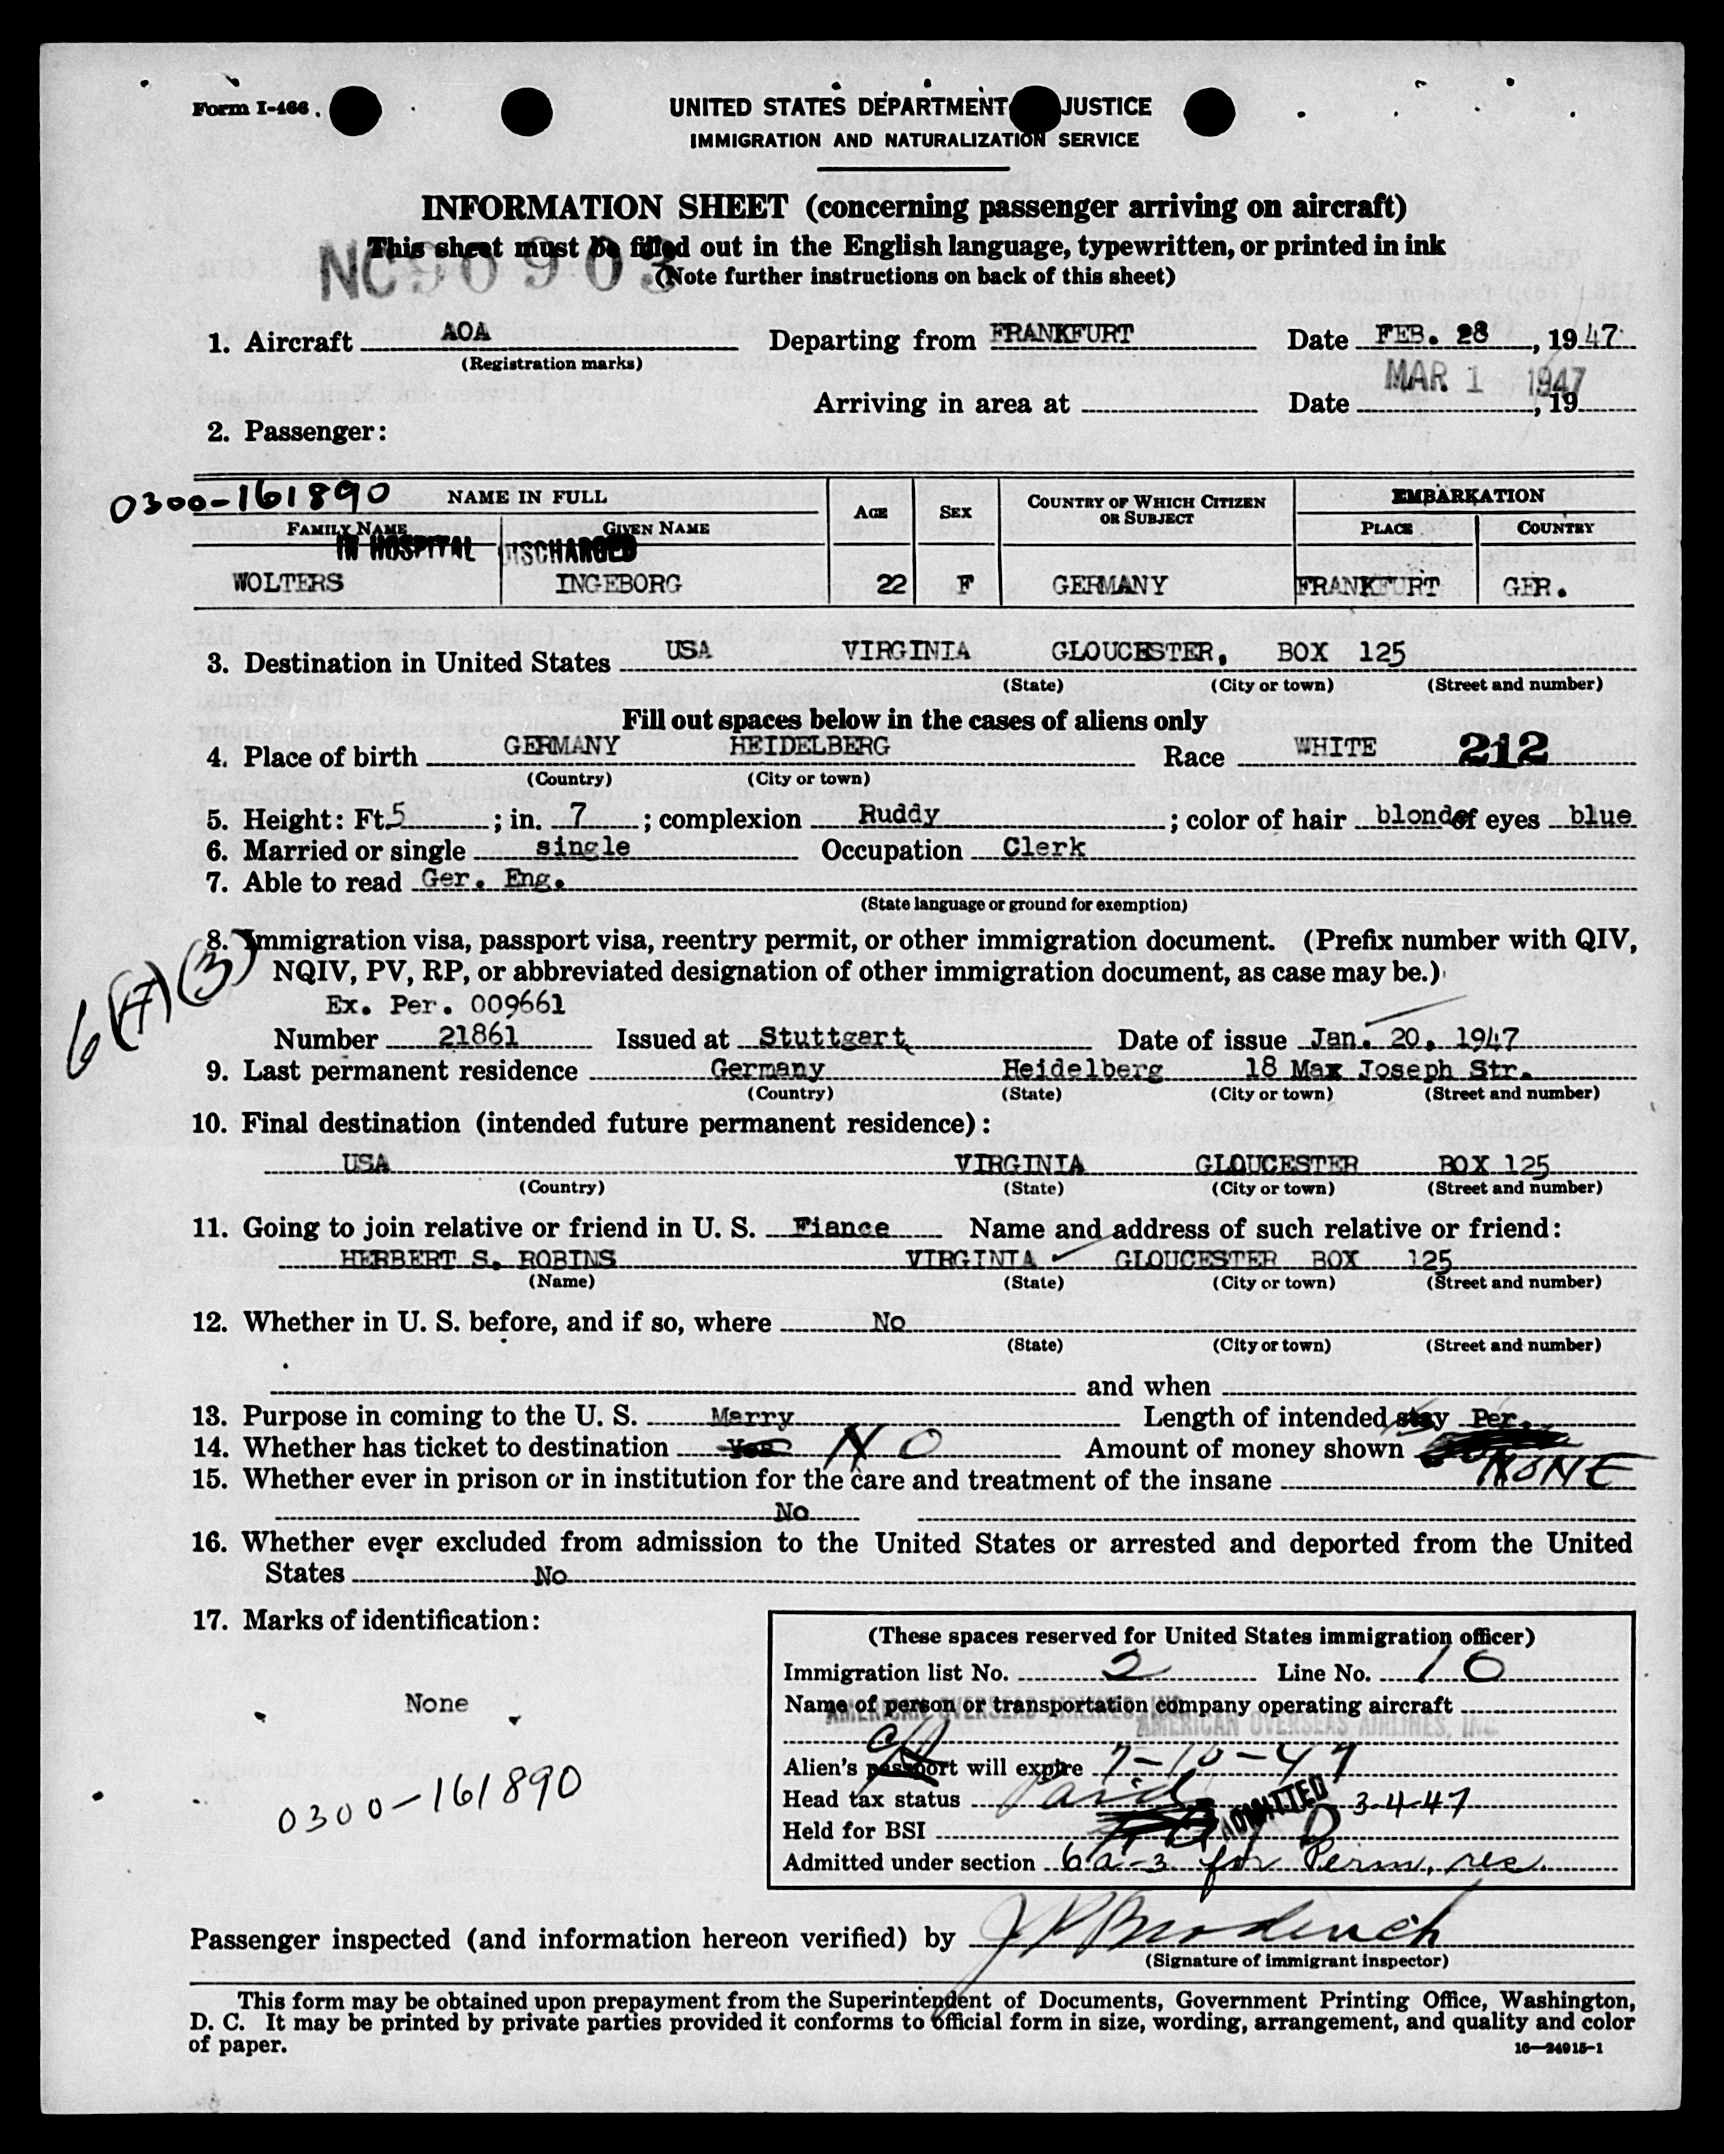 Form I-466.
UNITED STATES DEPARTMENT JUSTICE
IMMIGRATION AND NATURALIZATION SERVICE
INFORMATION SHEET (concerning passenger arriving on aircraft)
This sheet must be filled out in the English language, typewritten, or printed in ink
NC90903
(Note further instructions on back of this sheet)
1. Aircraft AOA Departing from FRANKFURT Date FEB. 28, 1947
(Registration marks)
MAR 1 1947
Arriving in area at Date , 19
2. Passenger:
0300-161890 NAME IN FULL AGE SEX COUNTRY OF WHICH CITIZEN OR SUBJECT EMBARKATION
FAMILY NAME GIVEN NAME PLACE COUNTRY
IN HOSPITAL DISCHARGED
WOLTERS INGEBORG 22 F GERMANY FRANKFURT GER.
3. Destination in United States USA VIRGINIA GLOUCESTER, BOX 125
(State) (City or town) (Street and number)
Fill out spaces below in the cases of aliens only
4. Place of birth GERMANY HEIDELBERG Race WHITE 212
(Country) (City or town)
5. Height: Ft. 5; in. 7; complexion Ruddy; color of hair blond of eyes blue
6. Married or single single Occupation Clerk
7. Able to read Ger. Eng.
(State language or ground for exemption)
8. Immigration visa, passport visa, reentry permit, or other immigration document. (Prefix number with QIV,
NQIV, PV, RP, or abbreviated designation of other immigration document, as case may be.)
6(A)(3)
Ex. Per. 009661
Number 21861 Issued at Stuttgart Date of issue Jan. 20, 1947
9. Last permanent residence Germany Heidelberg 18 Max Joseph Str.
(Country) (State) (City or town) (Street and number)
10. Final destination (intended future permanent residence):
USA VIRGINIA GLOUCESTER BOX 125
(Country) (State) (City or town) (Street and number)
11. Going to join relative or friend in U. S. Fiance Name and address of such relative or friend:
HERBERT S. ROBINS VIRGINIA GLOUCESTER BOX 125
(Name) (State) (City or town) (Street and number)
12. Whether in U. S. before, and if so, where No
(State) (City or town) (Street and number)
and when
13. Purpose in coming to the U. S. Marry Length of intended stay Per.
14. Whether has ticket to destination Yes NO Amount of money shown NONE
15. Whether ever in prison or in institution for the care and treatment of the insane
No
16. Whether ever excluded from admission to the United States or arrested and deported from the United
States No
17. Marks of identification:
None
0300-161890
(These spaces reserved for United States immigration officer)
Immigration list No. 2 Line No. 10
Name of person or transportation company operating aircraft
AMERICAN OVERSEAS AIRLINES, INC. AMERICAN OVERSEAS AIRLINES, INC.
Alien's passport will expire 7-10-47
Head tax status Paid ADMITTED 3-4-47
Held for BSI
Admitted under section 6a-3 for Perm. res.
Passenger inspected (and information hereon verified) by
(Signature of immigrant inspector)
This form may be obtained upon prepayment from the Superintendent of Documents, Government Printing Office, Washington,
D. C. It may be printed by private parties provided it conforms to official form in size, wording, arrangement, and quality and color
of paper.
16—24915-1